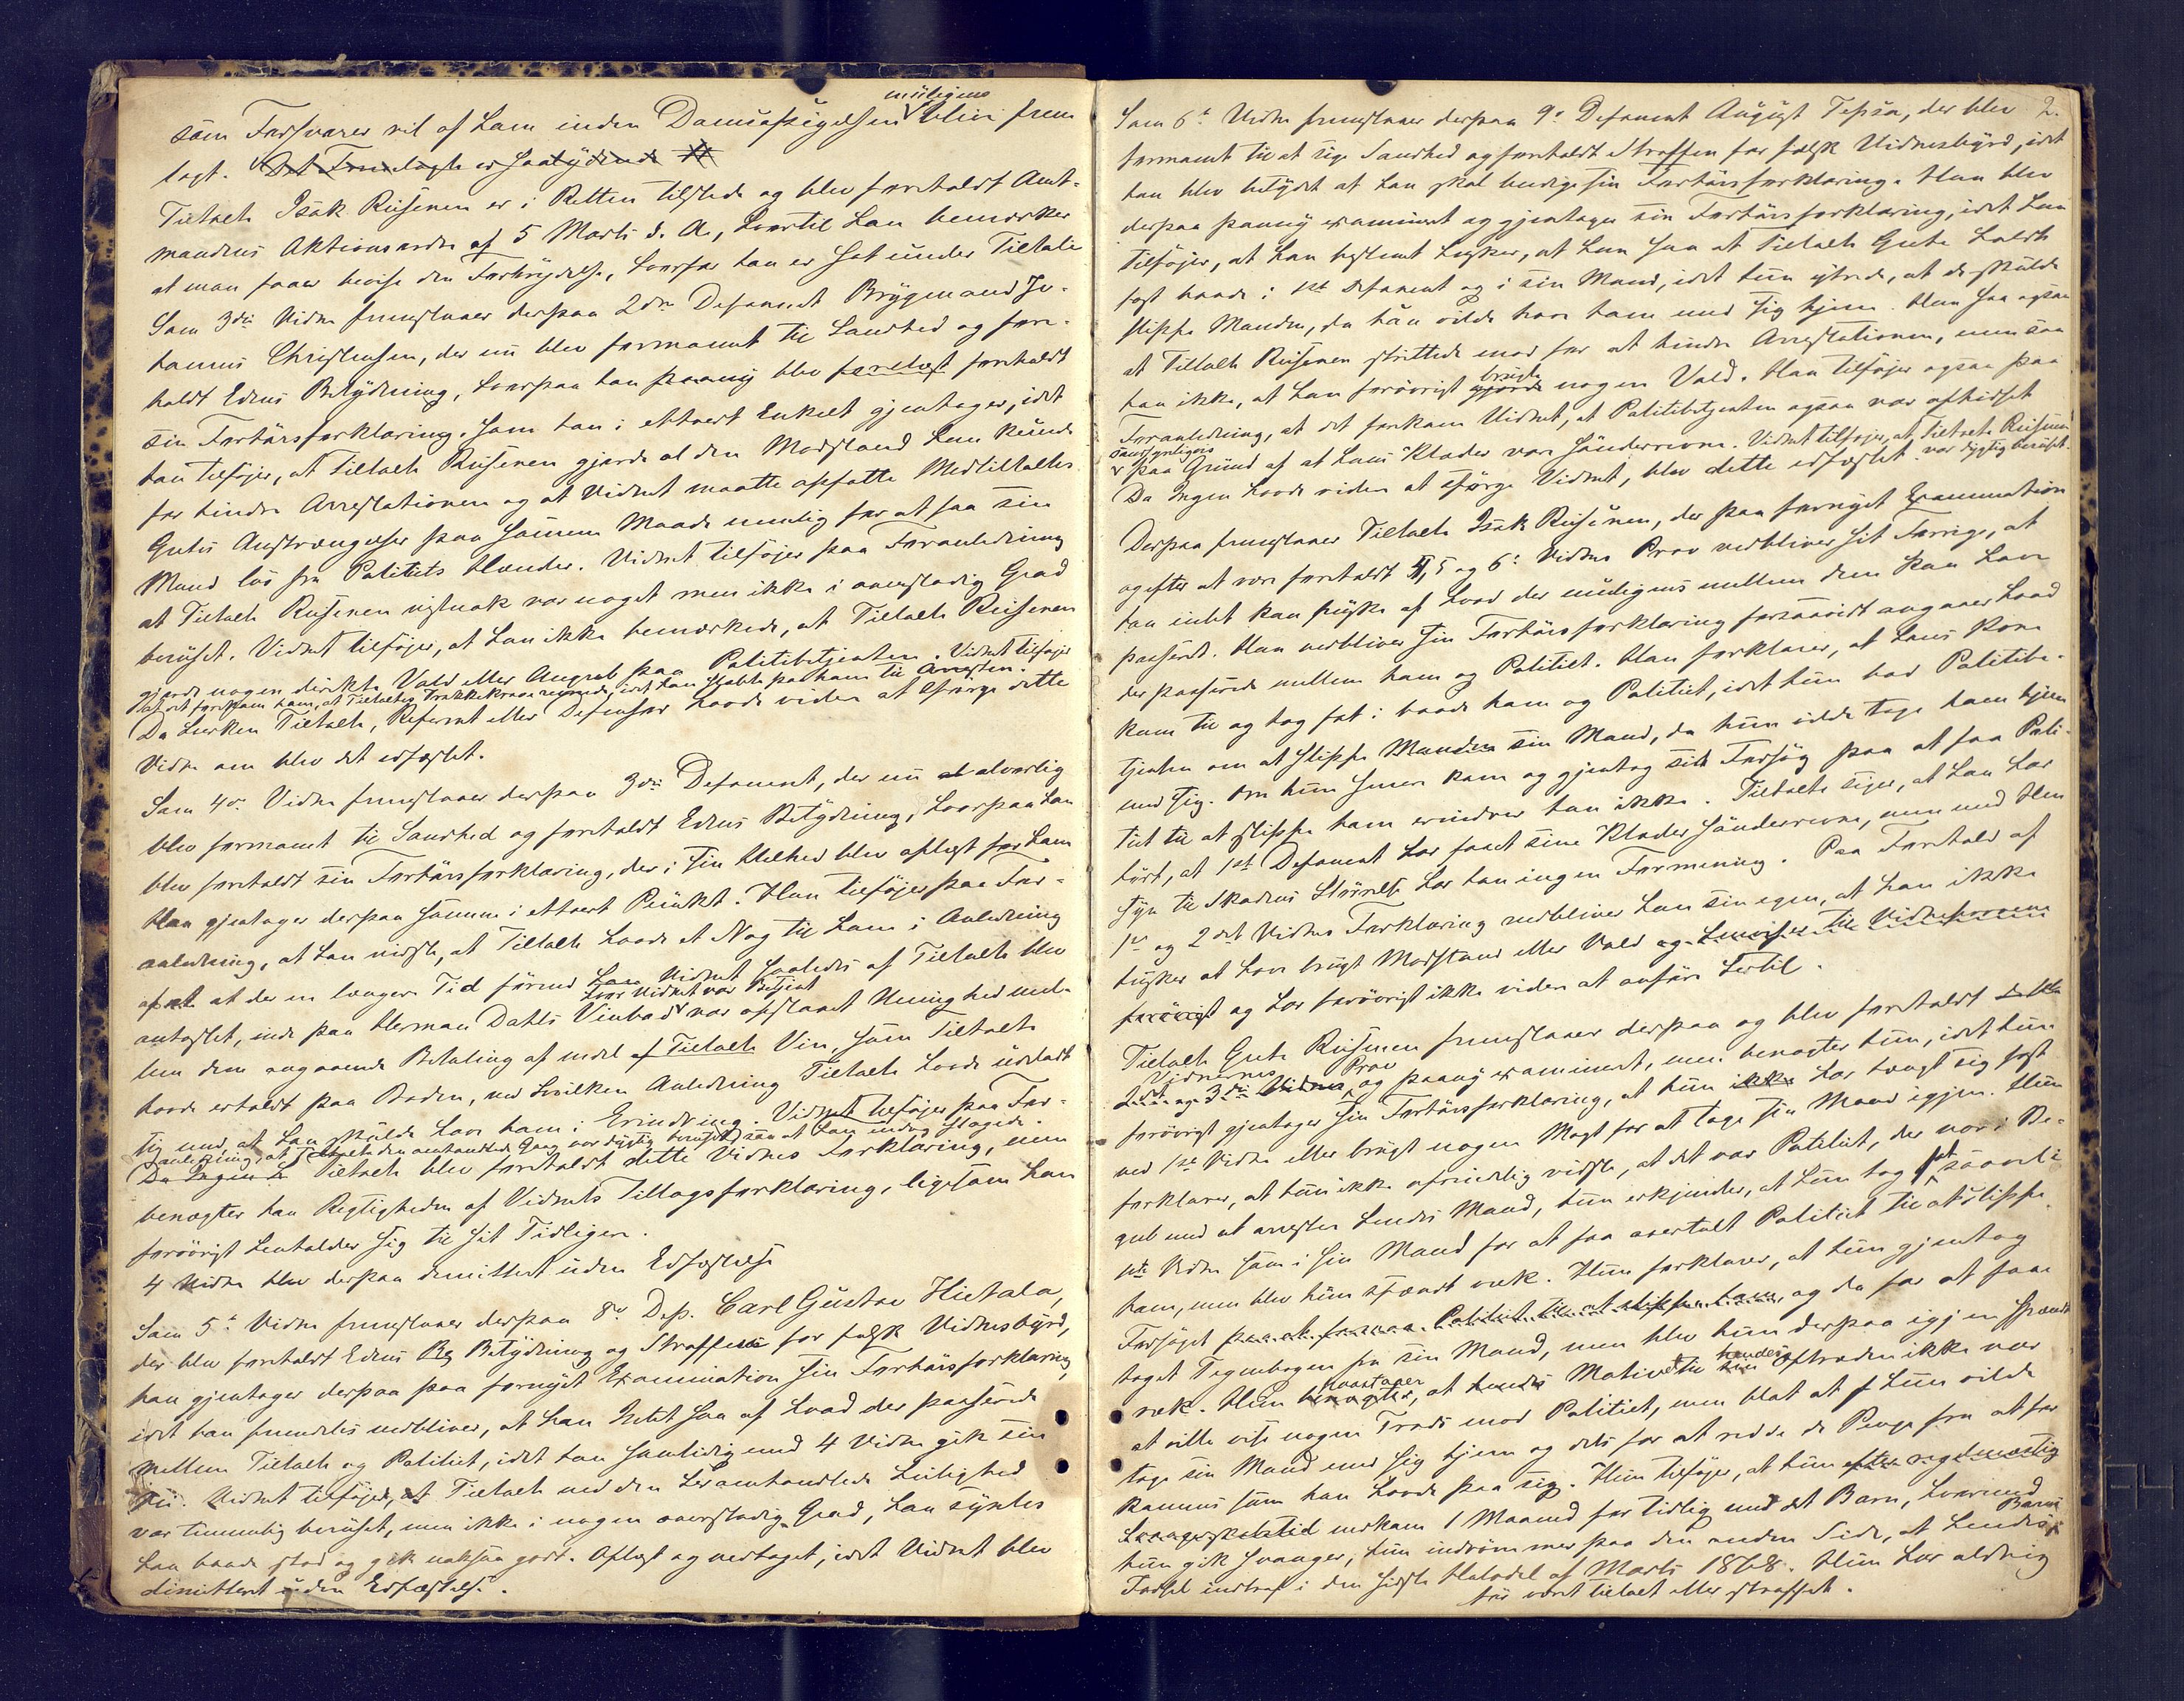 muligens
som Forsvarer vil af ham inden Domsafsigelsen blive frem
lagt. Det Fremlagte er saalydende #
Tiltalte Isak Riisenen er i Retten tilstede og blev foreholdt Amt-
mandens Aktionsordre af 5 Marts d. A., hvortil han bemærker
at man faaer bevise den Forbrydelse, hvorfor han er sat under Tiltale
Som 3die Vidne fremstaaer derpaa 2det Deponent Brygmand Jo-
hannes Christensen, der nu blev formanet til Sandhed og fore-
holdt Edens Betydning, hvorpaa han paany blev forelæst foreholdt
sin Forhørsforklaring. som han i ethvert Enkelt gjentager, idet
han tilføjer, at Tiltalte Riisenen gjorde al den Modstand han kunde
for hindre Arrestationen og at Vidnet maatte opfatte Medtiltaltes
Gretes Anstrængelser paa samme Maade nemlig for at faa sin
Mand løs fra Politiets Hænder. Vidnet tilføjer paa Foranledning
at Tiltalte Riisenen vistnok var noget men ikke i overstadig Grad
beruset. Vidnet tilføjer, at han ikke bemærkede, at Tiltalte Riisenen
gjorde nogen direkte Vold eller Angreb paa Politibetjenten. Vidnet tilføjer
at det forekom ham, at Tiltaltes idet han slæbte paa ham til Arresten.
Da hverken Tiltalte, Referent eller Defensor havde videre at spørge dette
Vidne om blev det edfæstet.
Som 4de Vidne fremstaaer derpaa 3die Deponent, der nu al alvorlig
blev formanet til Sandhed og foreholdt Edens Betydning, hvorpaa han
blev foreholdt sin Forhørsforklaring, der i sin Helhed blev oplæst for ham
Han gjentager derpaa samme i ethvert Punkt. Han tilføjer paa For-
anledning, at han vidste, at Tiltalte havde et Nag til ham i Anledning
af at at der en længere Tid førend han Vidnet saaledes af Tiltalte blev
hvor Vidnet var Betjent
antastet, inde paa Herman Dahls Vinbod var opstaaet Uenighed mel-
lem dem angaaende Betaling af endel af Tiltalte Vin, som Tiltalte
havde erholdt paa Boden, ved hvilken Anledning Tiltalte havde udtalt
sig med, at han skulde have ham i Erindring. Vidnet tilføjer paa For-
anledning, at Tiltalte den omhandlede Gang var dygtig beruset, saa at han endog slagede.
Da Ingen h Tiltalte blev foreholdt dette Vidnes Forklaring, men
benægter han Rigtigheden af Vidnets Tillægsforklaring, ligesom han
forøvrigt henholder sig til sit Tidligere.
4 Vidne blev derpaa dimitteret uden Edfæstelse
Som 5te Vidne fremstaaer derpaa 8de Dep. Carl Gustav Hietala,
der blev foreholdt Edens Bg Betydning og Straffen for falsk Vidnesbyrd,
han gjentager derpaa paa fornyet Examination sin Forhørsforklaring,
idet han fremdeles vedbliver, at han Intet saa af hvad der passerede
mellem Tiltalte og Politiet, idet han samtidig med 4 Vidne gik sin
Vei. Vidnet tilføjer, at Tiltalte ved den her omhandlede Leilighed
var temmelig beruset, men ikke i nogen overstadig Grad, han syntes
han baade stod og gik noksaa godt. Oplæst og vedtaget, idet Vidnet blev
dimitteret uden Edfæstelse.
2.
Som 6te Vidne fremstaaer derpaa 9de Deponent August Tepsa, der blev
formanet til at sige Sandhed og foreholdt Straffen for falsk Vidnesbyrd, idet
han blev betydet at han skal beedige sin Forhørsforklaring. Han blev
derpaa paany examineret og gjentager sin Forhørsforklaring, idet han
tilføjer, at han bestemt husker, at han saa at Tiltalte Grete holdt
fast baade i 1ste Deponent og i sin Mand, idet hun ytrede, at de skulde
slippe Manden, da hun vilde have ham med sig hjem. Han saa ogsaa
at Tiltalte Riisenen strittede mod for at hindre Arrestationen, men saa
brugte
han ikke, at han forøvrigt gjorde nogen Vold. Han tilføjer ogsaa paa
Foranledning, at det forekom Vidnet, at Politibetjenten ogsaa var ophidset
sandsynligvis
paa Grund af at hans Klæder vare sønderrevne. Vidnet tilføjer, at Tiltalte Riisenen
var dygtig beruset.
Da Ingen havde videre at spørge Vidnet, blev dette edfæstet
Derpaa fremstaaer Tiltalte Isak Riisenen, der paa fornyet Examination
og efter at være foreholdt 4, 5 og 6te Vidnes Prov vedbliver sit Forrige, at
han intet kan huske af hvad der muligens mellem dem kan have
passeret. Han vedbliver sin Forhørsforklaring forsaavidt angaaer hvad
der passerede mellem ham og Politiet. Han forklarer, at hans Kone
kom til og tog fat i baade ham og Politiet, idet hun bad Politibe-
tjenten om at slippe Manden sin Mand, da hun vilde tage ham hjem
med sig. Om hun senere kom og gjentog sit Forsøg paa at faa Poli-
tiet til at slippe ham erindrer han ikke. Tiltalte siger, at han har
hørt, at 1ste Deponent har faaet sine Klæder sønderrevne, men med Hen
syn til Skadens Størrelse har han ingen Formening. Paa Foreholdt af
1ste og 2det Vidnes Forklaring vedbliver han sin egen, at han ikke
husker at have brugt Modstand eller Vold og henviser til Vidneprovene
forøvrigt og har forøvrigt ikke videre at anføre hertil.
Tiltalte Grete Riisenen fremstaaer derpaa og blev foreholdt dette
Vidnernes Prov
2det og 3die Vidne, og paany examineret, men benægter hun, idet hun
forøvrigt gjentager sin Forhørsforklaring, at hun ikke har hængt sig fast
ved 1ste Vidne eller brugt nogen Magt for at tage sin Mand igjen. Hun
forklarer, at hun ikke egentlig vidste, at det var Politiet, der var i Be-
greb med at arrestere hendes Mand, hun erkjender, at hun tog fat saavel i
1ste Vidne som i sin Mand for at faa overtalt Politiet til at slippe
ham, men blev hun spændt væk. Hun forklarer, at hun gjentog
Forsøget paa at formaa Politiet til at slippe ham, og da for at faae
taget Pengebogen fra sin Mand, men blev hun derpaa igjen spændt
paastaaer hendes
væk. Hun benægter, at hendes Motiv til sin Optræden ikke var
at ville vise nogen Trods mod Politiet, men blot at f hun vilde
tage sin Mand med sig hjem og dels for at redde de Penge fra at for
kommes som han havde paa sig. Hun tilføjer, at hun efter regelmæssig
Svangerskabstid nedkom 1 Maaned for tidlig med det Barn, hvormed
Barns
hun gik svanger, hun indrømmer paa den anden Side, at hendes
Fødsel indtraf i den sidste Halvdel af Marts 1878. Hun har aldrig
før været tiltalt eller straffet.